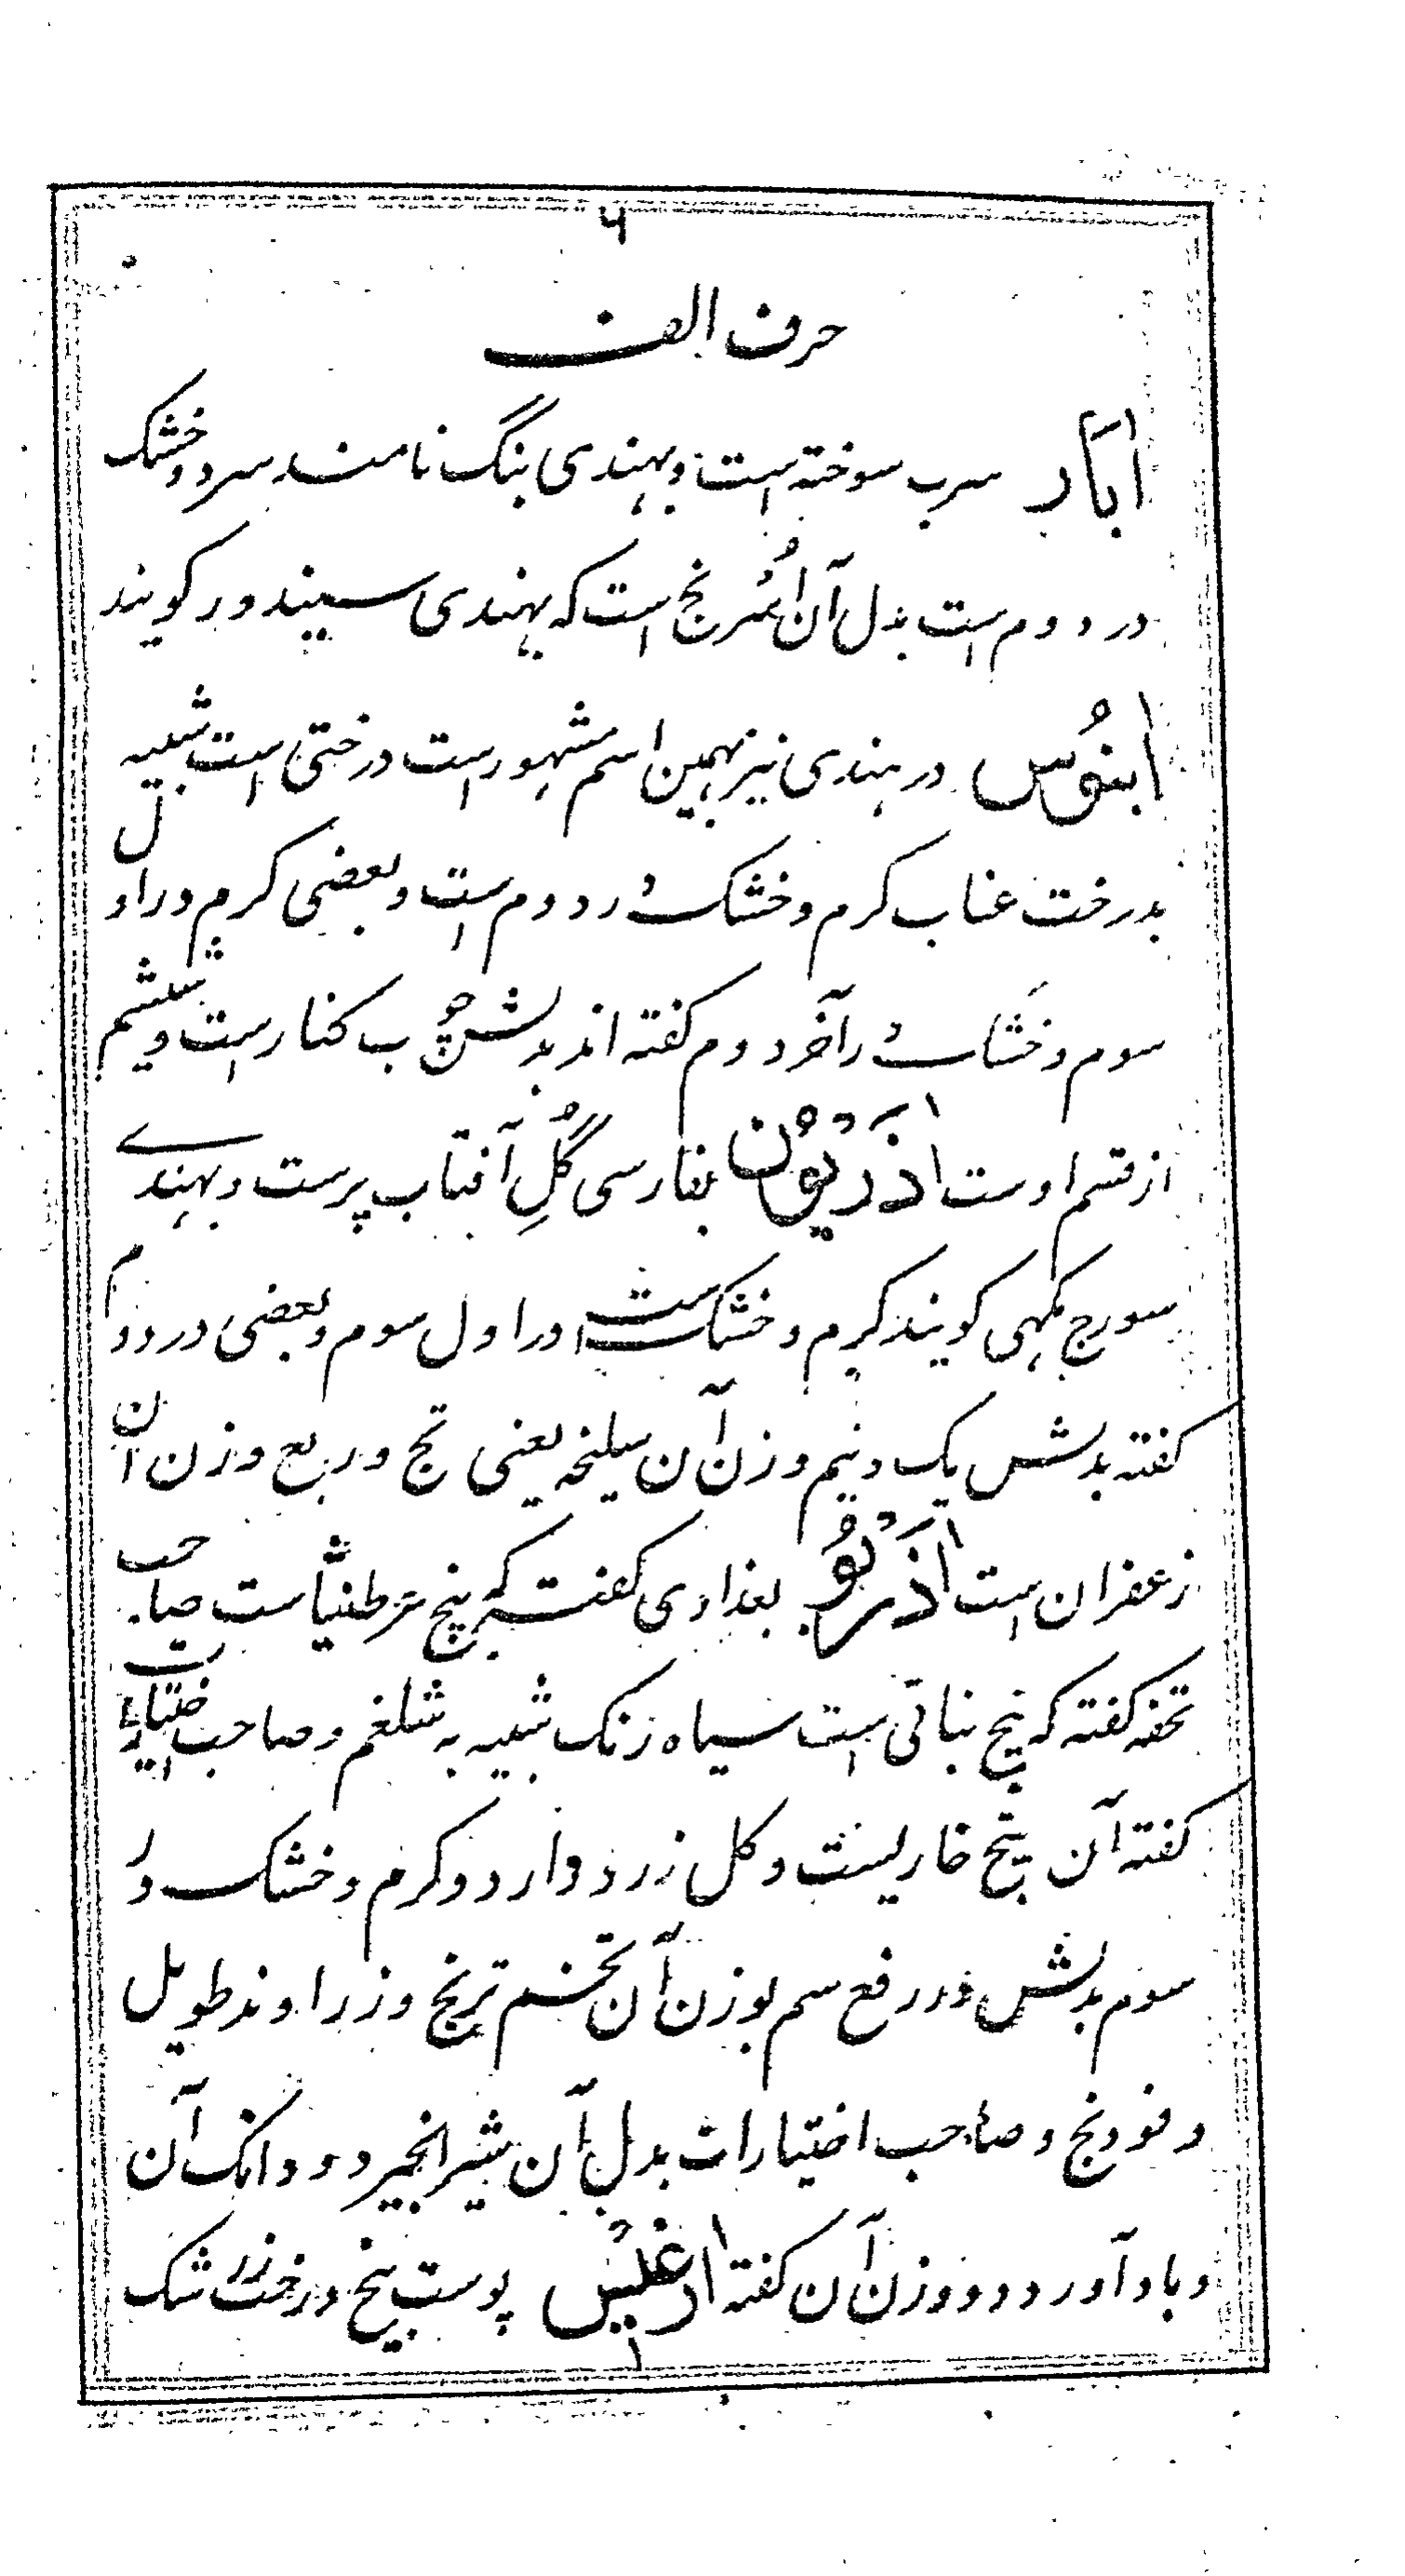 ۵
حرف الف
ابار سرب سوخته است و بهندی بنگ نامند سرد و خشک
در دوم است بدل آن اُسرنج است که بهندی سیندور کویند
ابنوُس در هندی نیز بهمین اسم مشهور است درختی است شبیه
بدرخت عناب کرم و خشک در دوم است و بعضی کرم در اول
سوم و خشک در آخر دوم کفته اند بدلش چوب کنار است و شیشم
از قسم اوست اذریون بفارسی گُلِ آفتاب پرست و بهندے
سورج مکهی کویند کرم و خشک است در اول سوم و بعضی در دوم
کفته بدلش یک و نیم وزن آن سلیخه یعنی تج و ربع وزن آن
زعفران است اذربو بغدادی کفته که بیخ عرطنیثا ست صاحب
تحفه کفته که بیخ نباتی است سیاه رنک شبیه به شلغم و صاحب اختیارات
کفته آن بیخ خاریست و کل زرد دارد و کرم و خشک در
سوم بدلش در رفع سم بوزن آن تخم ترنج و زراوند طویل
و فودنج و صاحب اختیارات بدل آن شیر انجیر دو دانک آن
و باد آورد دو وزن آن کفته ارغیس پوست بیخ درخت زرشک